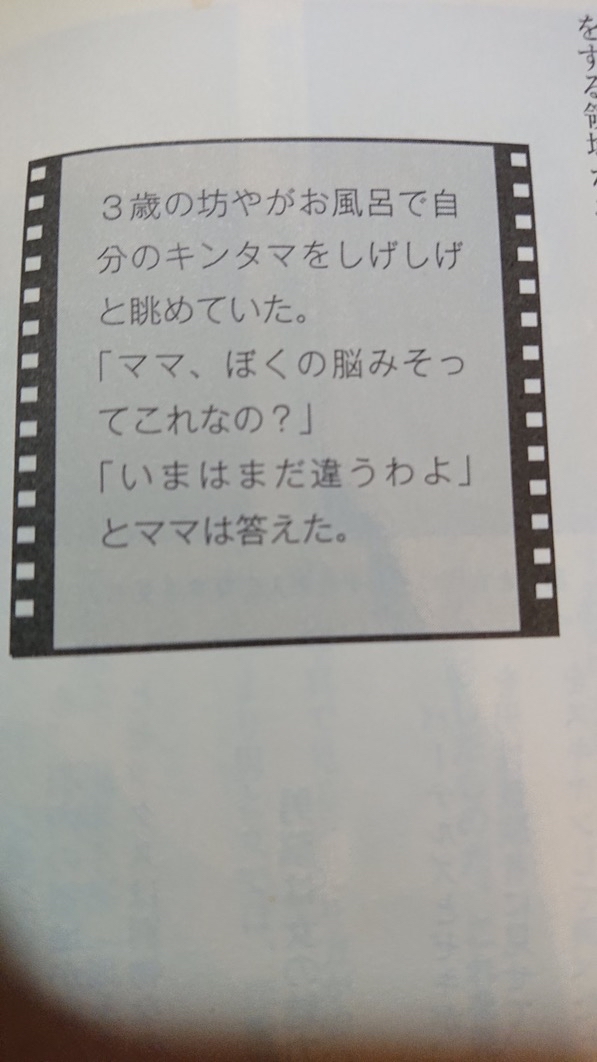 ３歳の坊やがお風呂で自
分のキンタマをしげしげ
と眺めていた。
「ママ、ぼくの脳みそっ
てこれなの？」
「いまはまだ違うわよ」
とママは答えた。
をする領